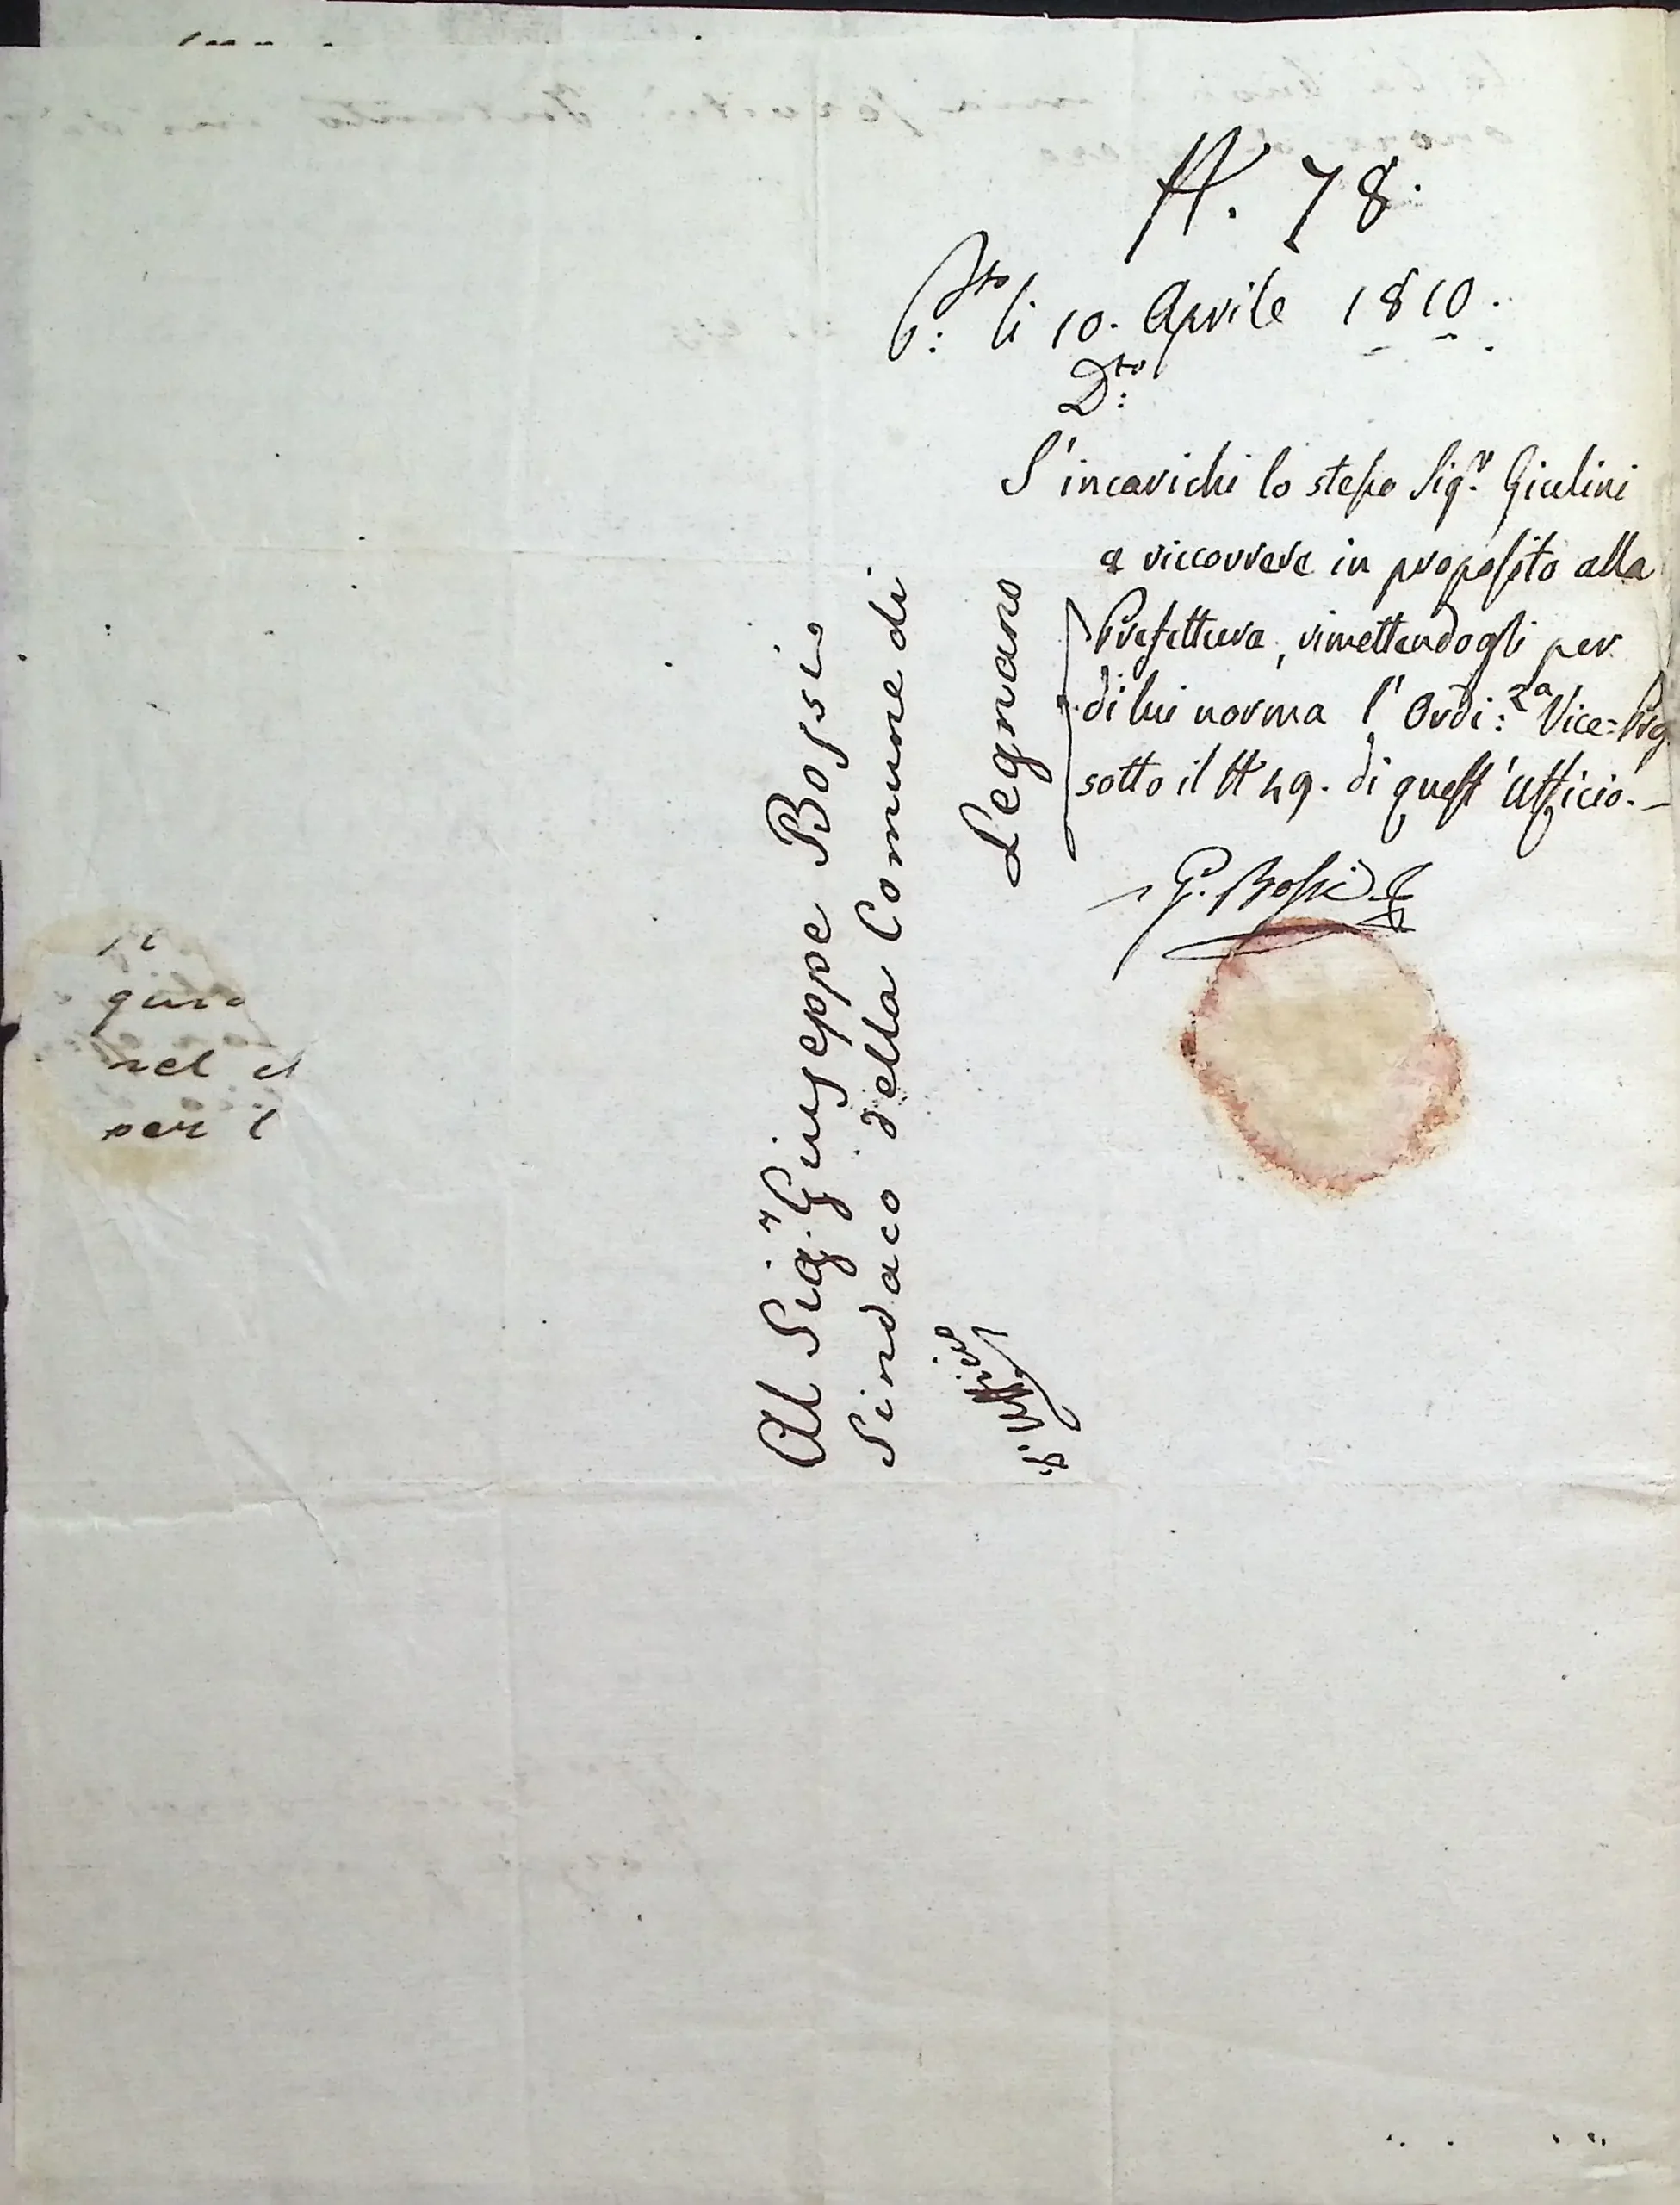 N. 78.
P:to li 10. Aprile 1810.
D:to
S'incarichi lo stesso Sig.r Giulini
a riccorrere in proposito alla
Prefettura, rimettendogli per
di lui norma l'Ordi:za Vice-Pref.
sotto il N 49. di quest'Ufficio.
G. Bossi
Al Sig.r Giuseppe Bossi
Sindaco della Comune di
Legnano
d'Ufficio
quso
nel
per l